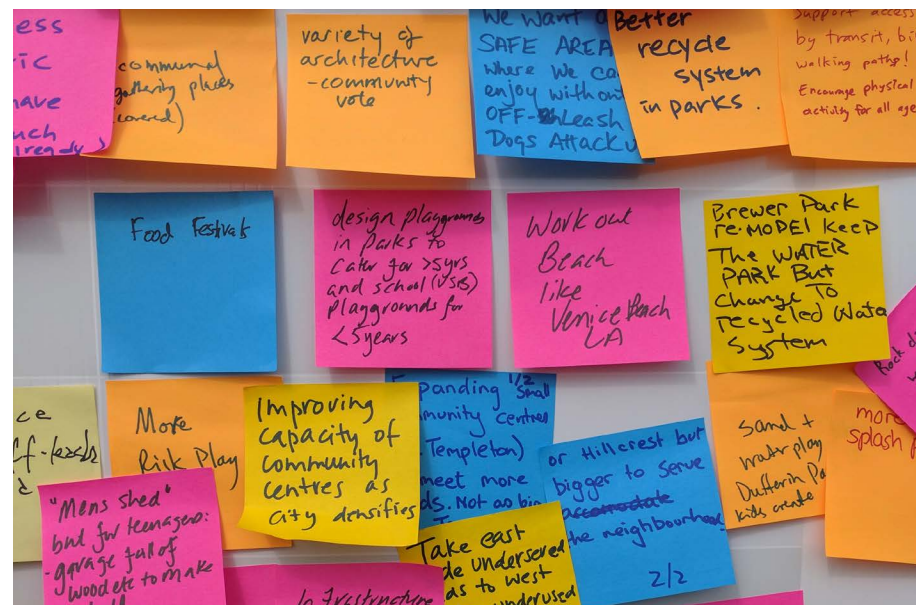 ess
ic
have
uch
lready)
communal
gathering places
covered)
variety of
architecture
-community
vote
We want a
SAFE AREA
where we ca
enjoy without
OFF-Leash
Dogs Attack
Better
recycle
system
in parks.
Support access
by transit, bi
walking paths!
Encourage physical
activity for all age
Food Festivals
design playgrounds
in parks to
Cater for >5yrs
and school (VSB)
playgrounds for
<5years
Work out
Beach
like
Venice Beach
LA
Brewer Park
re-MODEL keep
The WATER
PARK But
change To
recycled Wate
System
Rock
ce
ff-leash
More
Risk Play
Improving
capacity of
community
centres as
city densifies
panding small 1/2
munity centres
Templeton)
meet more
ds. Not as big
or Hillcrest but
bigger to serve
accomodate
the neighbourhood
2/2
Sand +
water play
Dufferin Pa
kids create
more
splash p
"Mens shed"
but for teenagers:
-garage full of
wood etc to make
Take east
de undersered
as to west
underused
Infrastructure